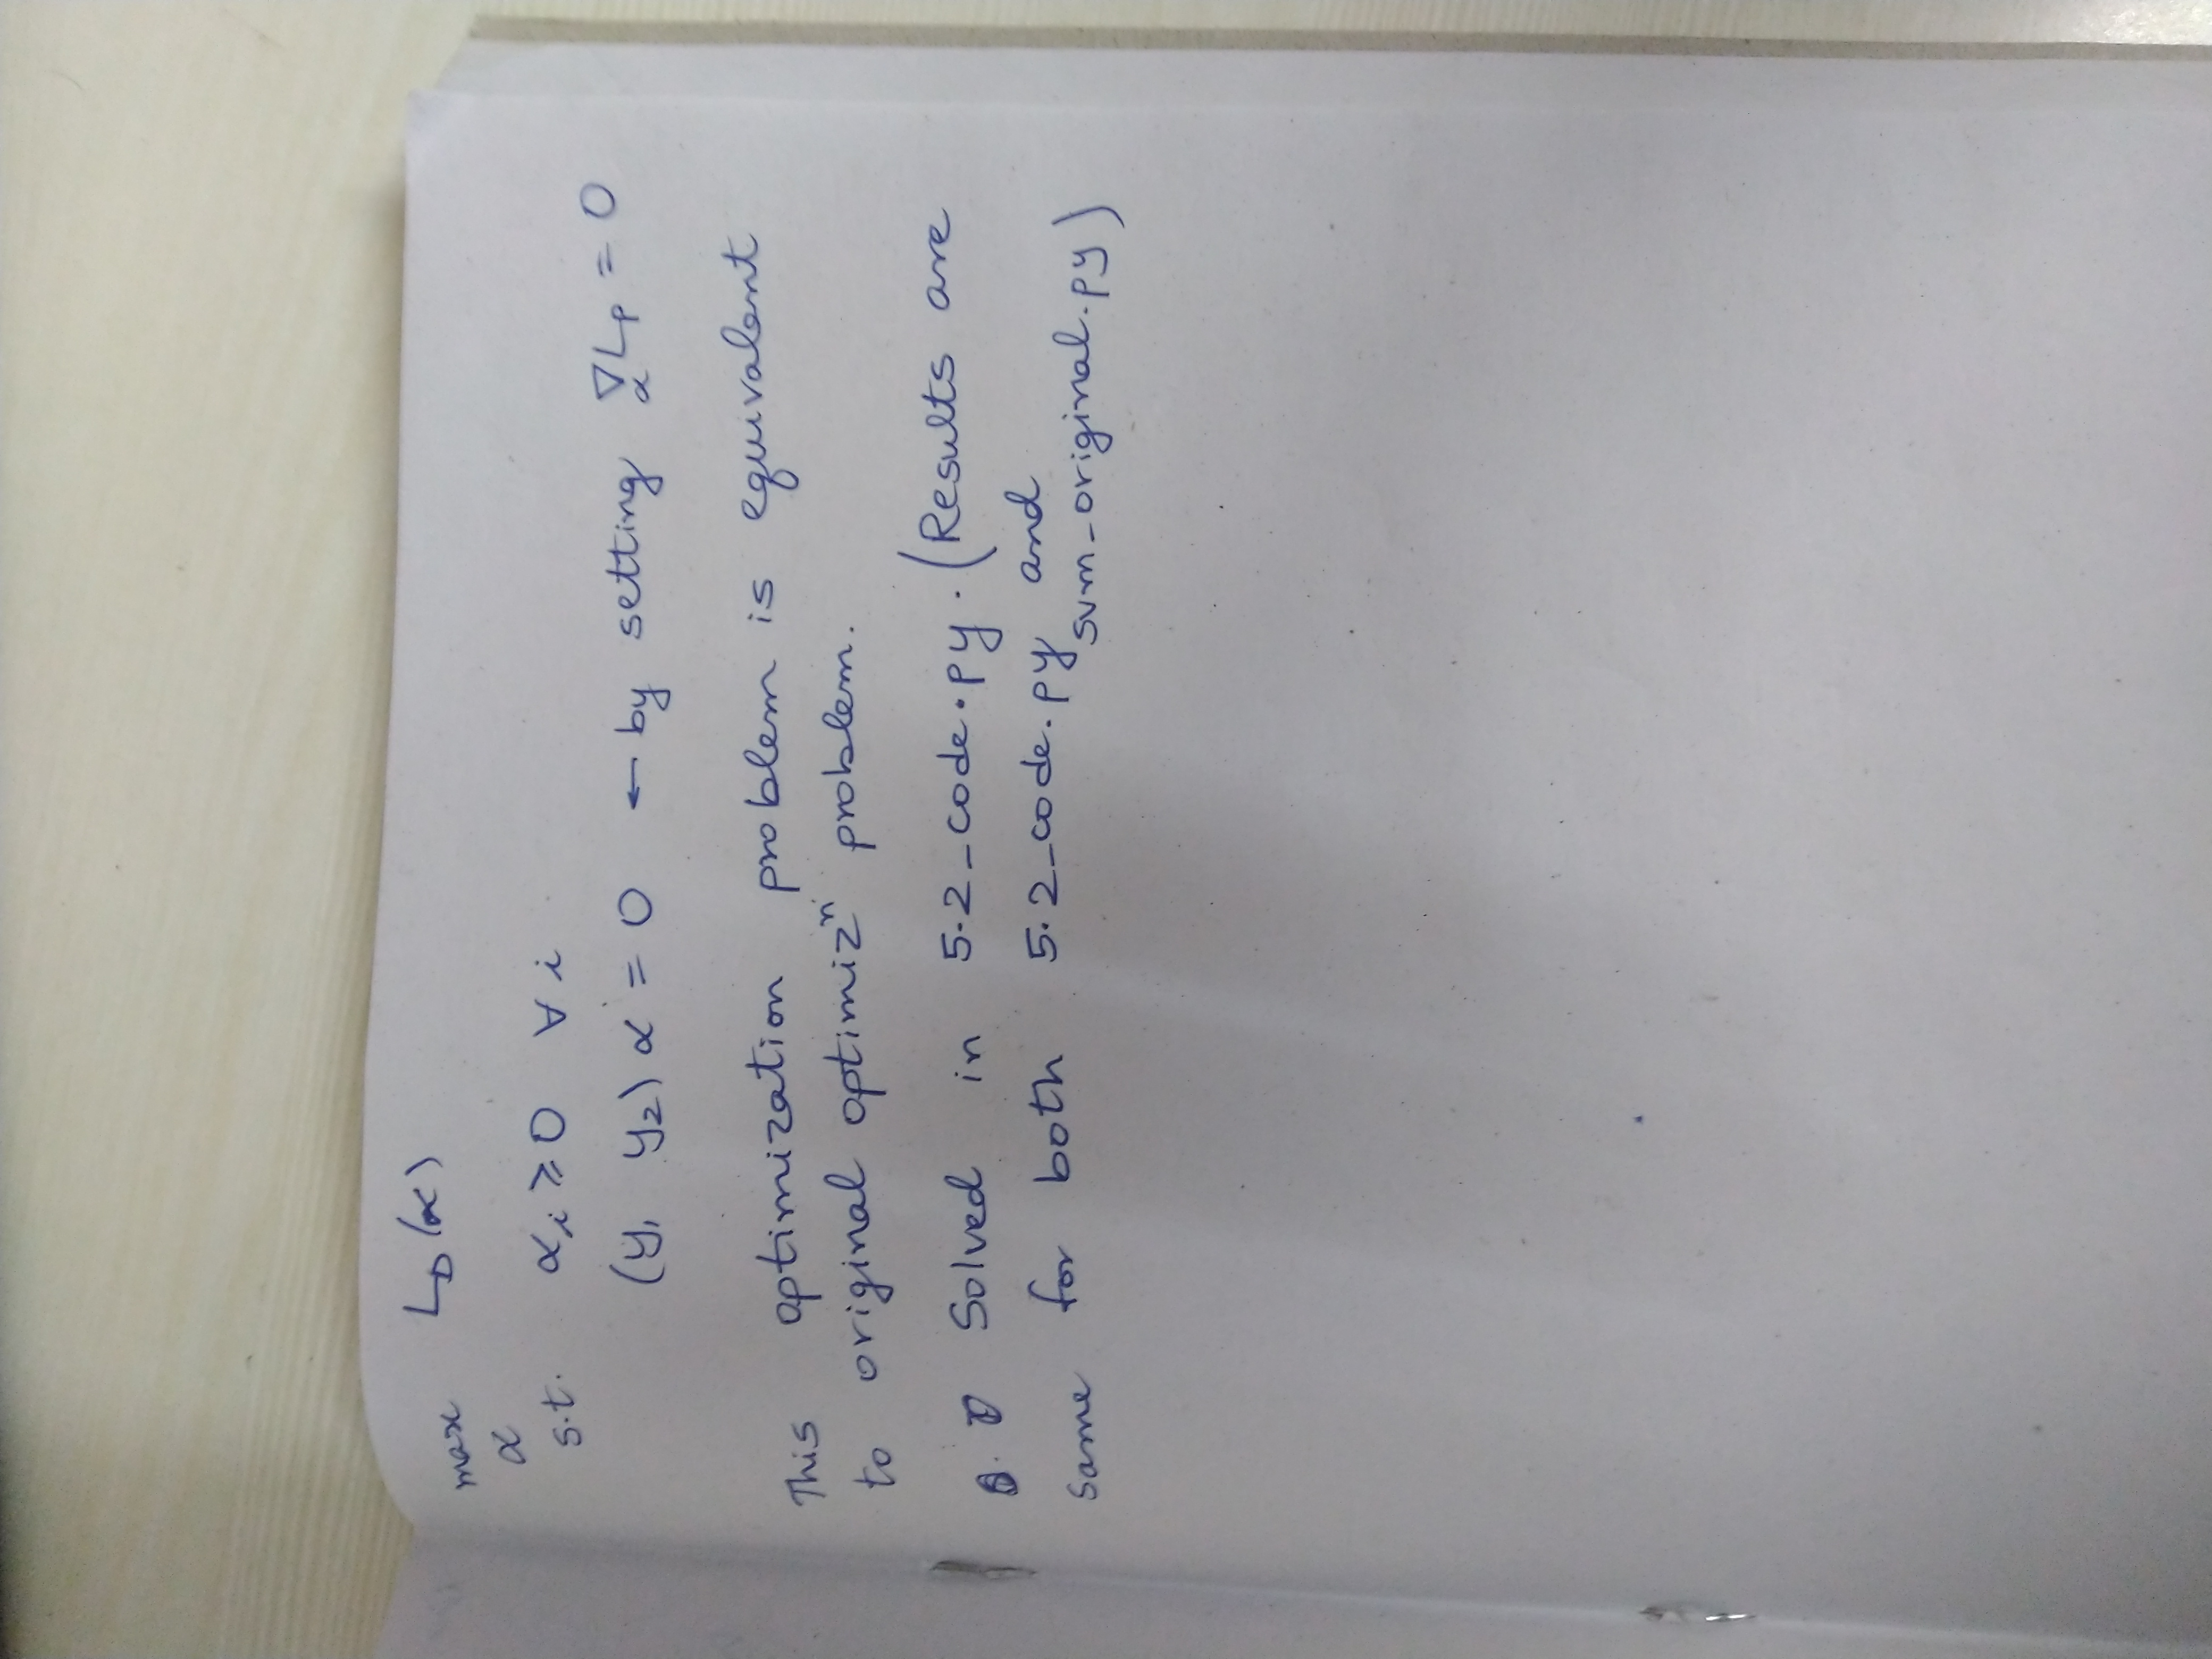 max L_D(α)
α
s.t. αᵢ ≥ 0 ∀ i
(y₁ y₂) α = 0 ← by setting ∇_α L_P = 0
This optimization problem is equivalent
to original optimizⁿ problem.
Solved in 5.2_code.py. (Results are
same for both 5.2_code.py and
svm_original.py)